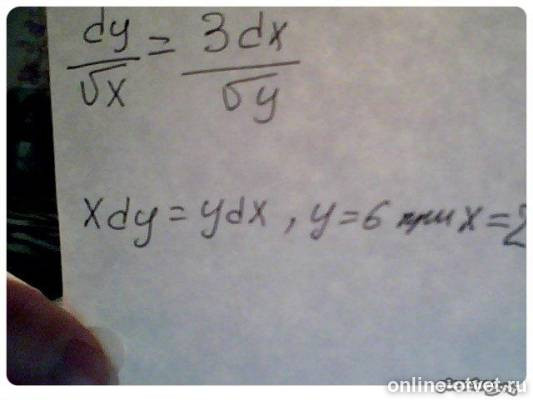 dy/√x = 3dx/√y
xdy = ydx, y=6 при x=2
online-otvet.ru